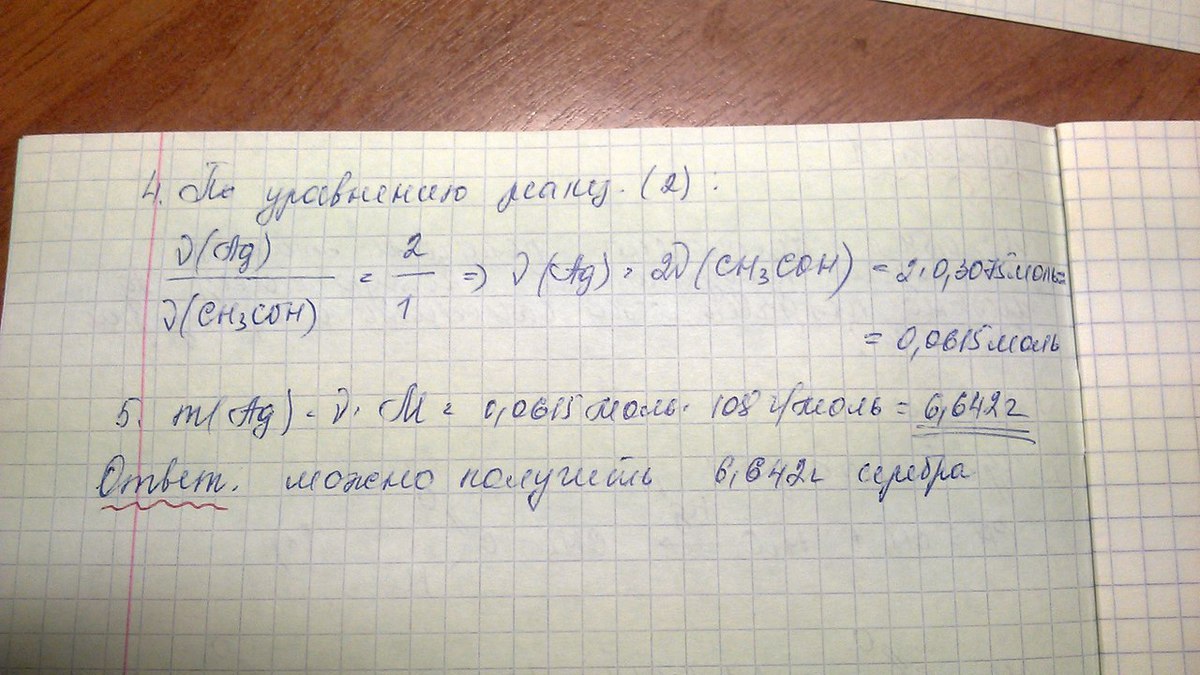 4. По уравнению реакц. (2):
ν(Ag) / ν(CH₃COH) = 2 / 1 => ν(Ag) = 2ν(CH₃COH) = 2·0,3075моль=
= 0,0615моль
5. m(Ag) = ν·M = 0,0615моль· 108 г/моль = 6,642г
Ответ. можно получить 6,642г серебра